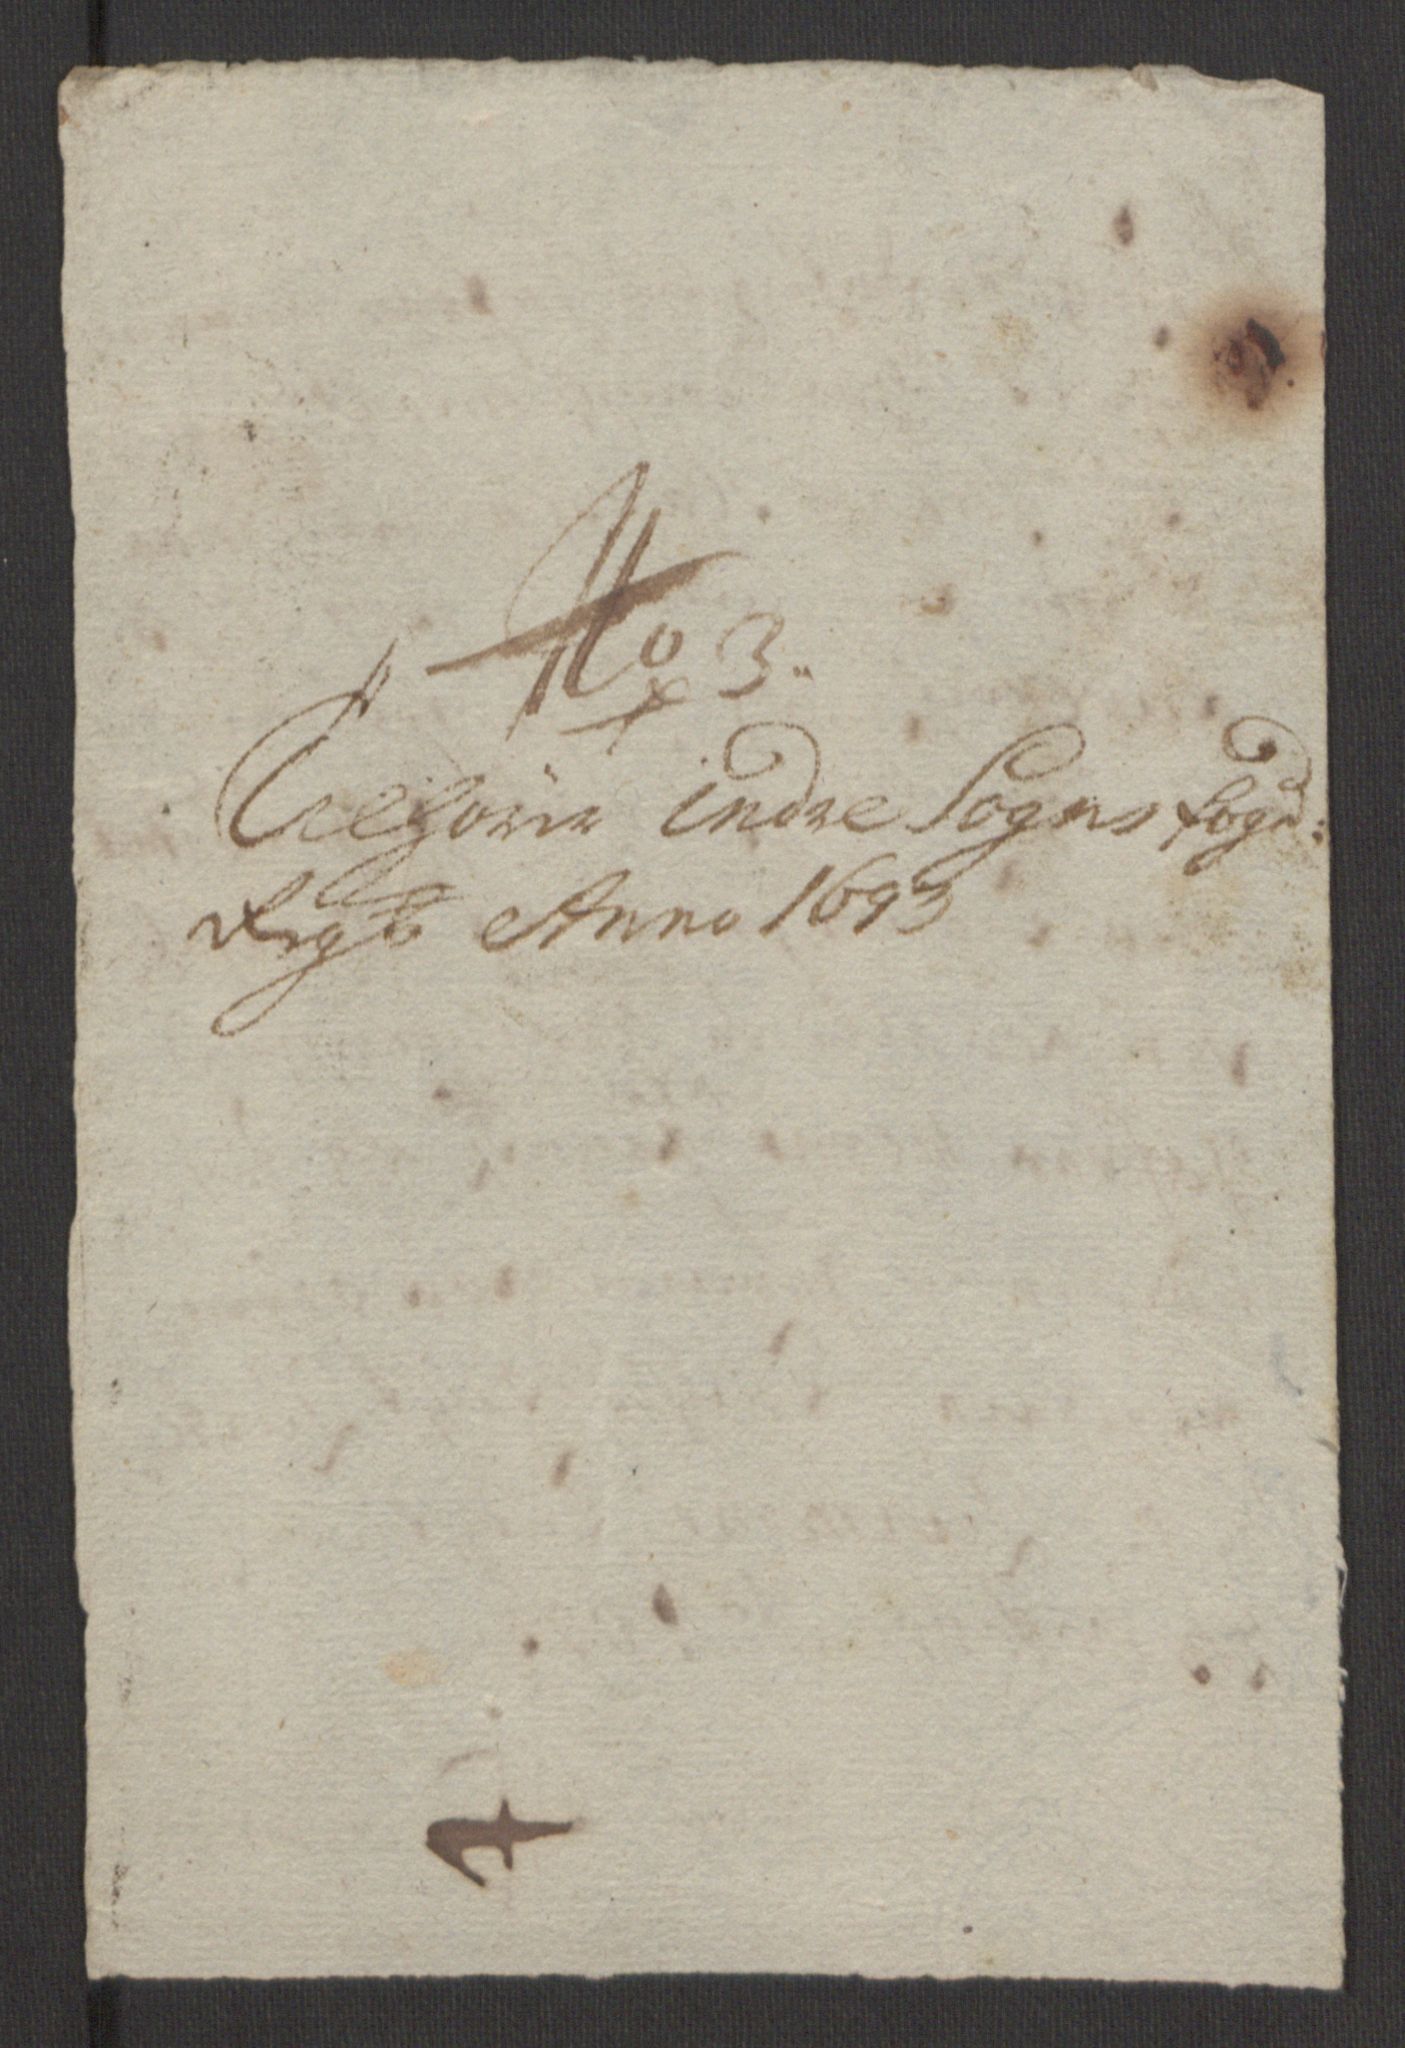 No 3.
Tilhörer indre Sogns fogd:
Regb Anno 1693
4